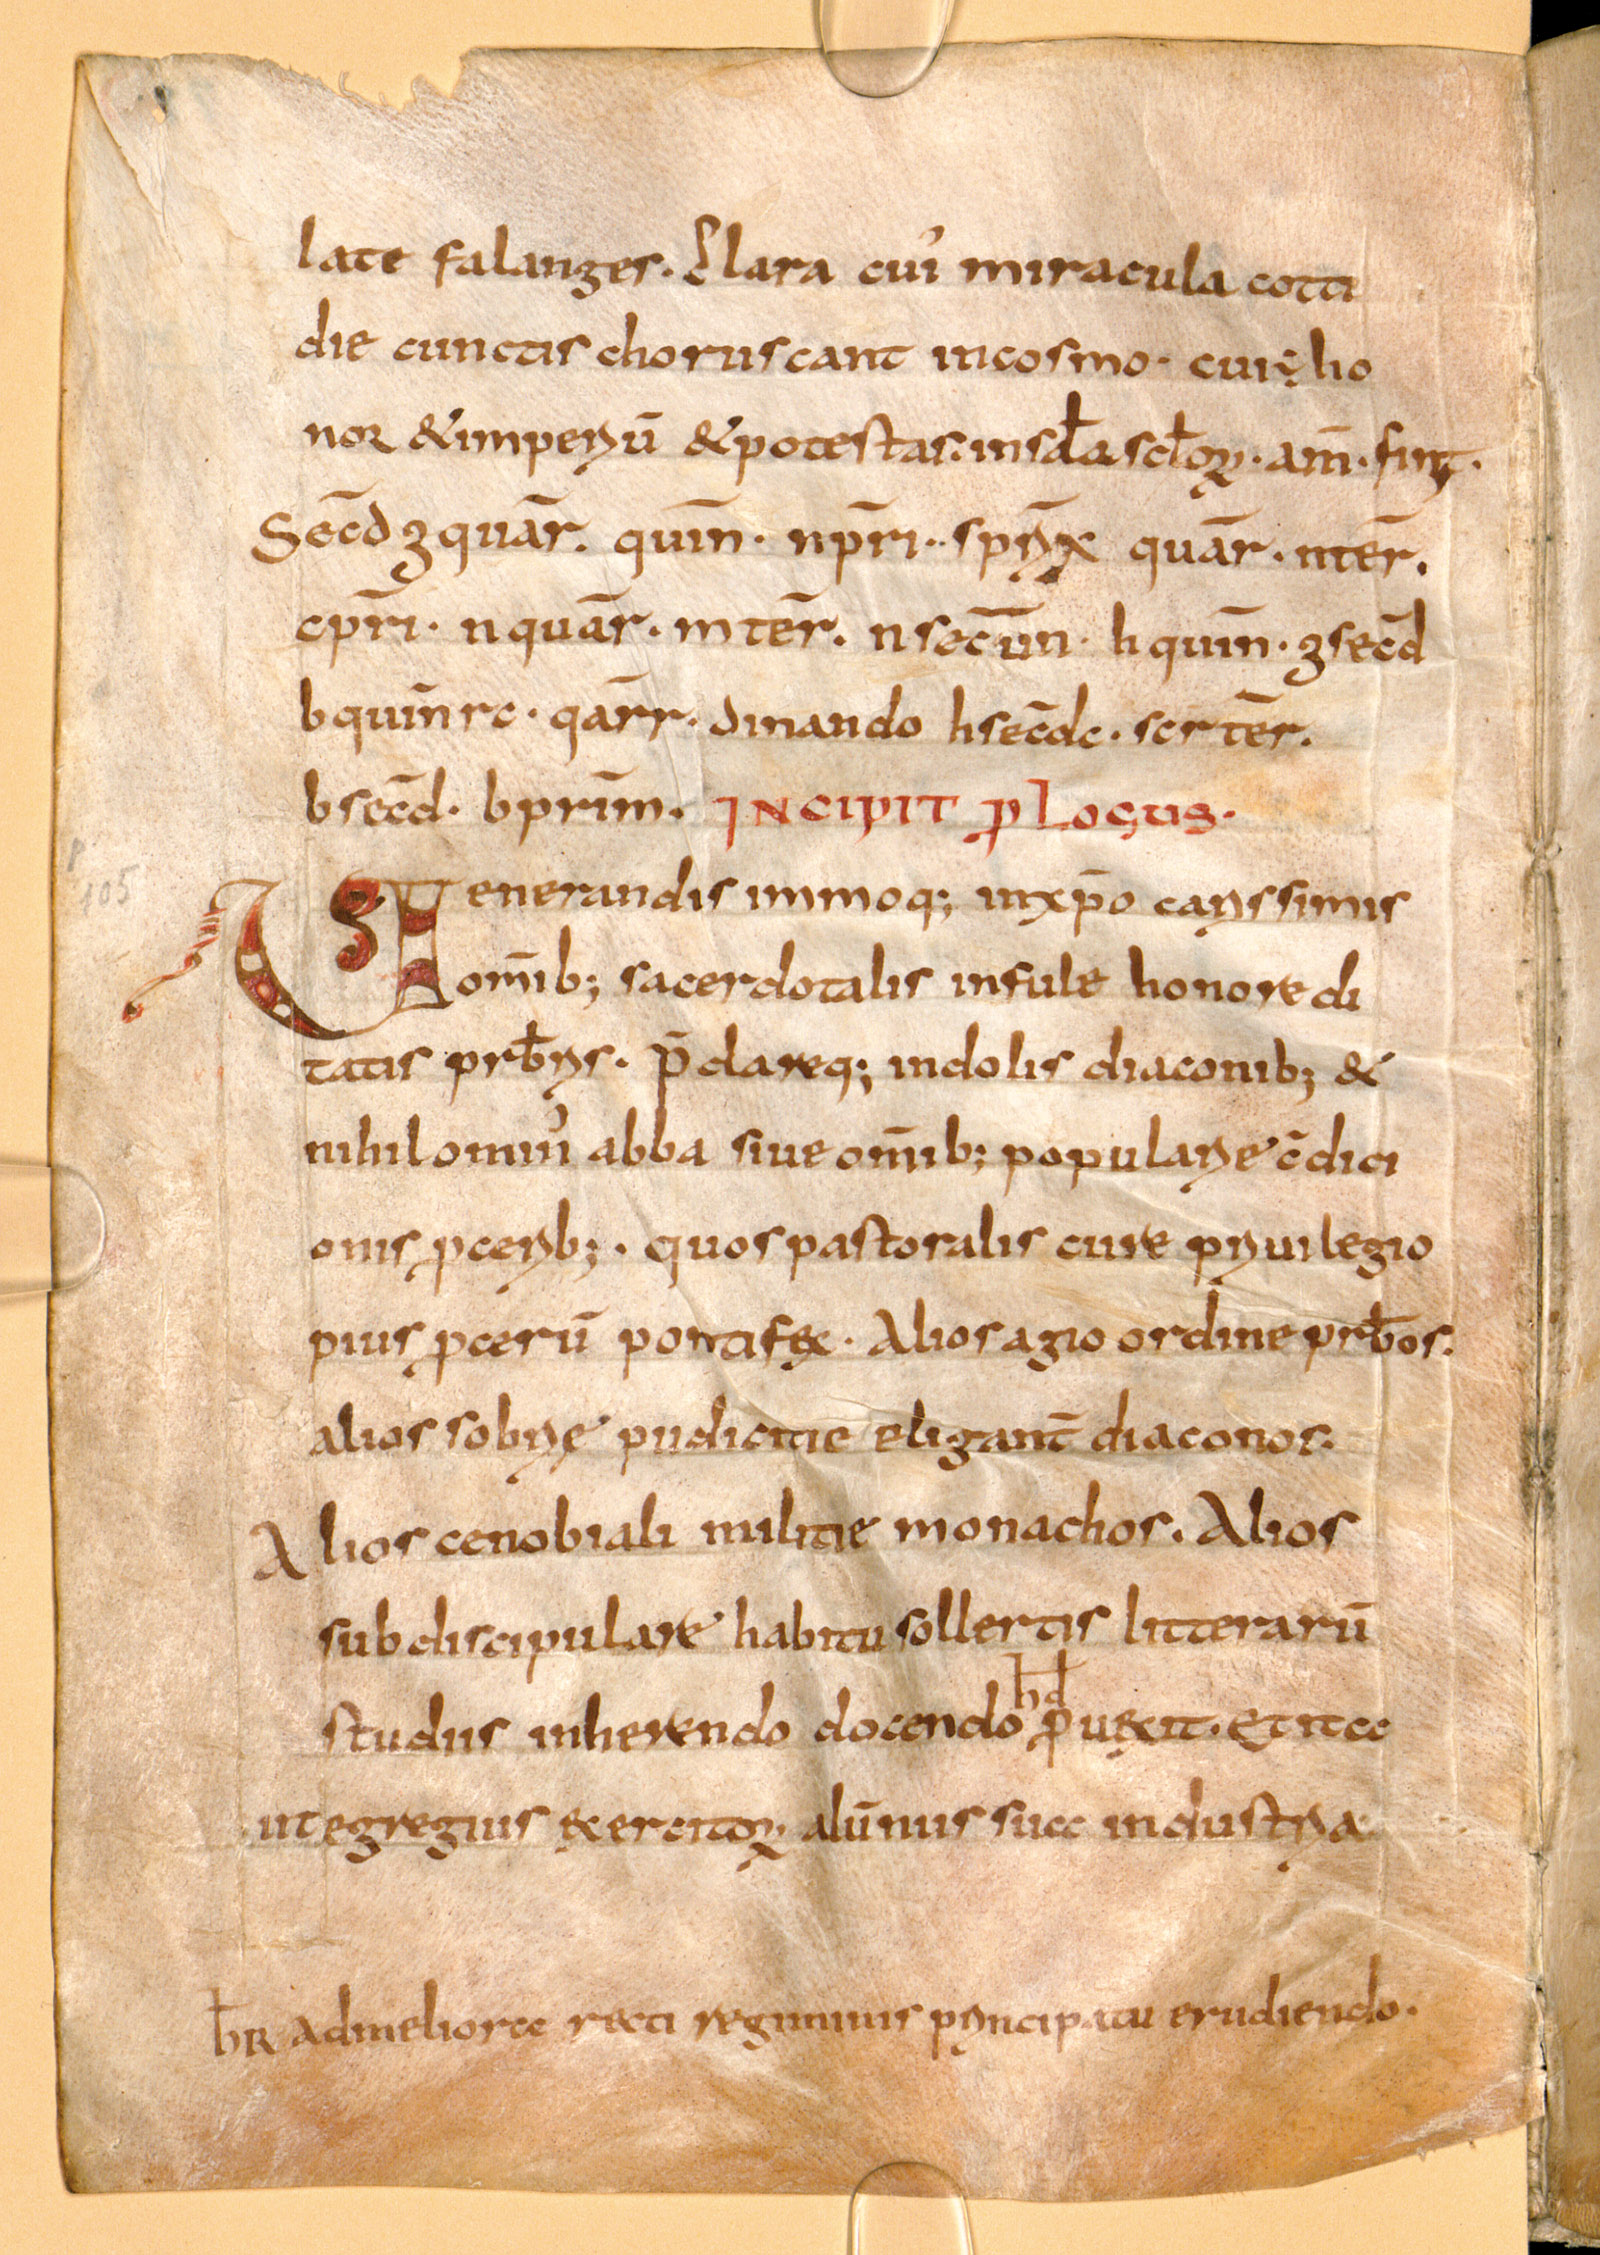 late falanges. Clara cui' miracula cotti
die cunctis choruscant in cosmo. cui ę ho
nor & imperiū & potestas. in sc̄la sc̄loꝝ. am̄. finit.
Secd̄ gquār. quīn. npr̄i. spriix quār. ntēr.
cpr̄i. nquār. mtēr. nsec̄un. hquīn. gsec̄d
bquīnrc. qār̄r. dinando hsec̄dc. scrtēr.
bsec̄d. bprīm. INCIPIT ꝓLogus.
Venerandis immoq; inxp̄o carissimis
om̄ib; sacerdotalis infule honore di
tatis prb̄ris. p̄clareq; indolis diaconib; &
nihilomin' abba siue om̄ib; populariꝫ c̄dici
onis ꝓcerib;. quos pastoralis cure priuilegio
pius ꝓcerū pontifex. Alios agio ordine prb̄os.
alios sobrie pudicitie eligant̄ diaconos.
Alios cenobiali militie monachos. Alios
sub discipulare habitu sollertis litterarū
studiis inherendo docendo hd ꝓuexit. Et ita
ut egregius exercitoꝝ alūnus sua industria
hr̄ ad meliora recti regiminis principatu erudiendo.
105